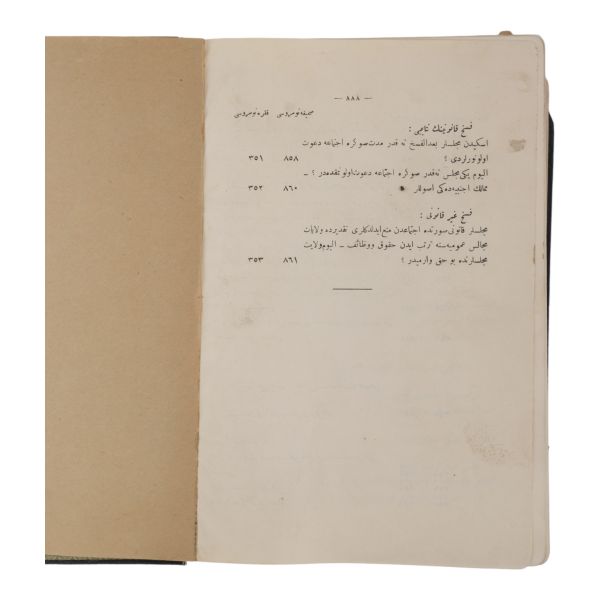 — ٨٨٨ —
صحیفه نومروسی فقره نومروسی
فسخ قانونینك نتایجی :
اسکیدن مجلسلر بعدالفسخ نه قدر مدت صوکره اجتماعه دعوت
اولونورلردی ؟ ٨٥٨ ٣٥١
الیوم یکی مجلس نه قدر صوکره اجتماعه دعوت اولونمقده در ؟ ـ
ممالك اجنبیه ده کی اصوللر ٨٦٠ ٣٥٢
فسخ غیر قانونی :
مجلسلر قانونی سورنده اجتماعدن منع ایدلدکلری تقدیرده ولایات
مجالس عمومیه سنه ترتب ایدن حقوق ووظائف ـ الیوم ولایت
مجلسلرنده بو حق وارمیدر ؟ ٨٦١ ٣٥٣